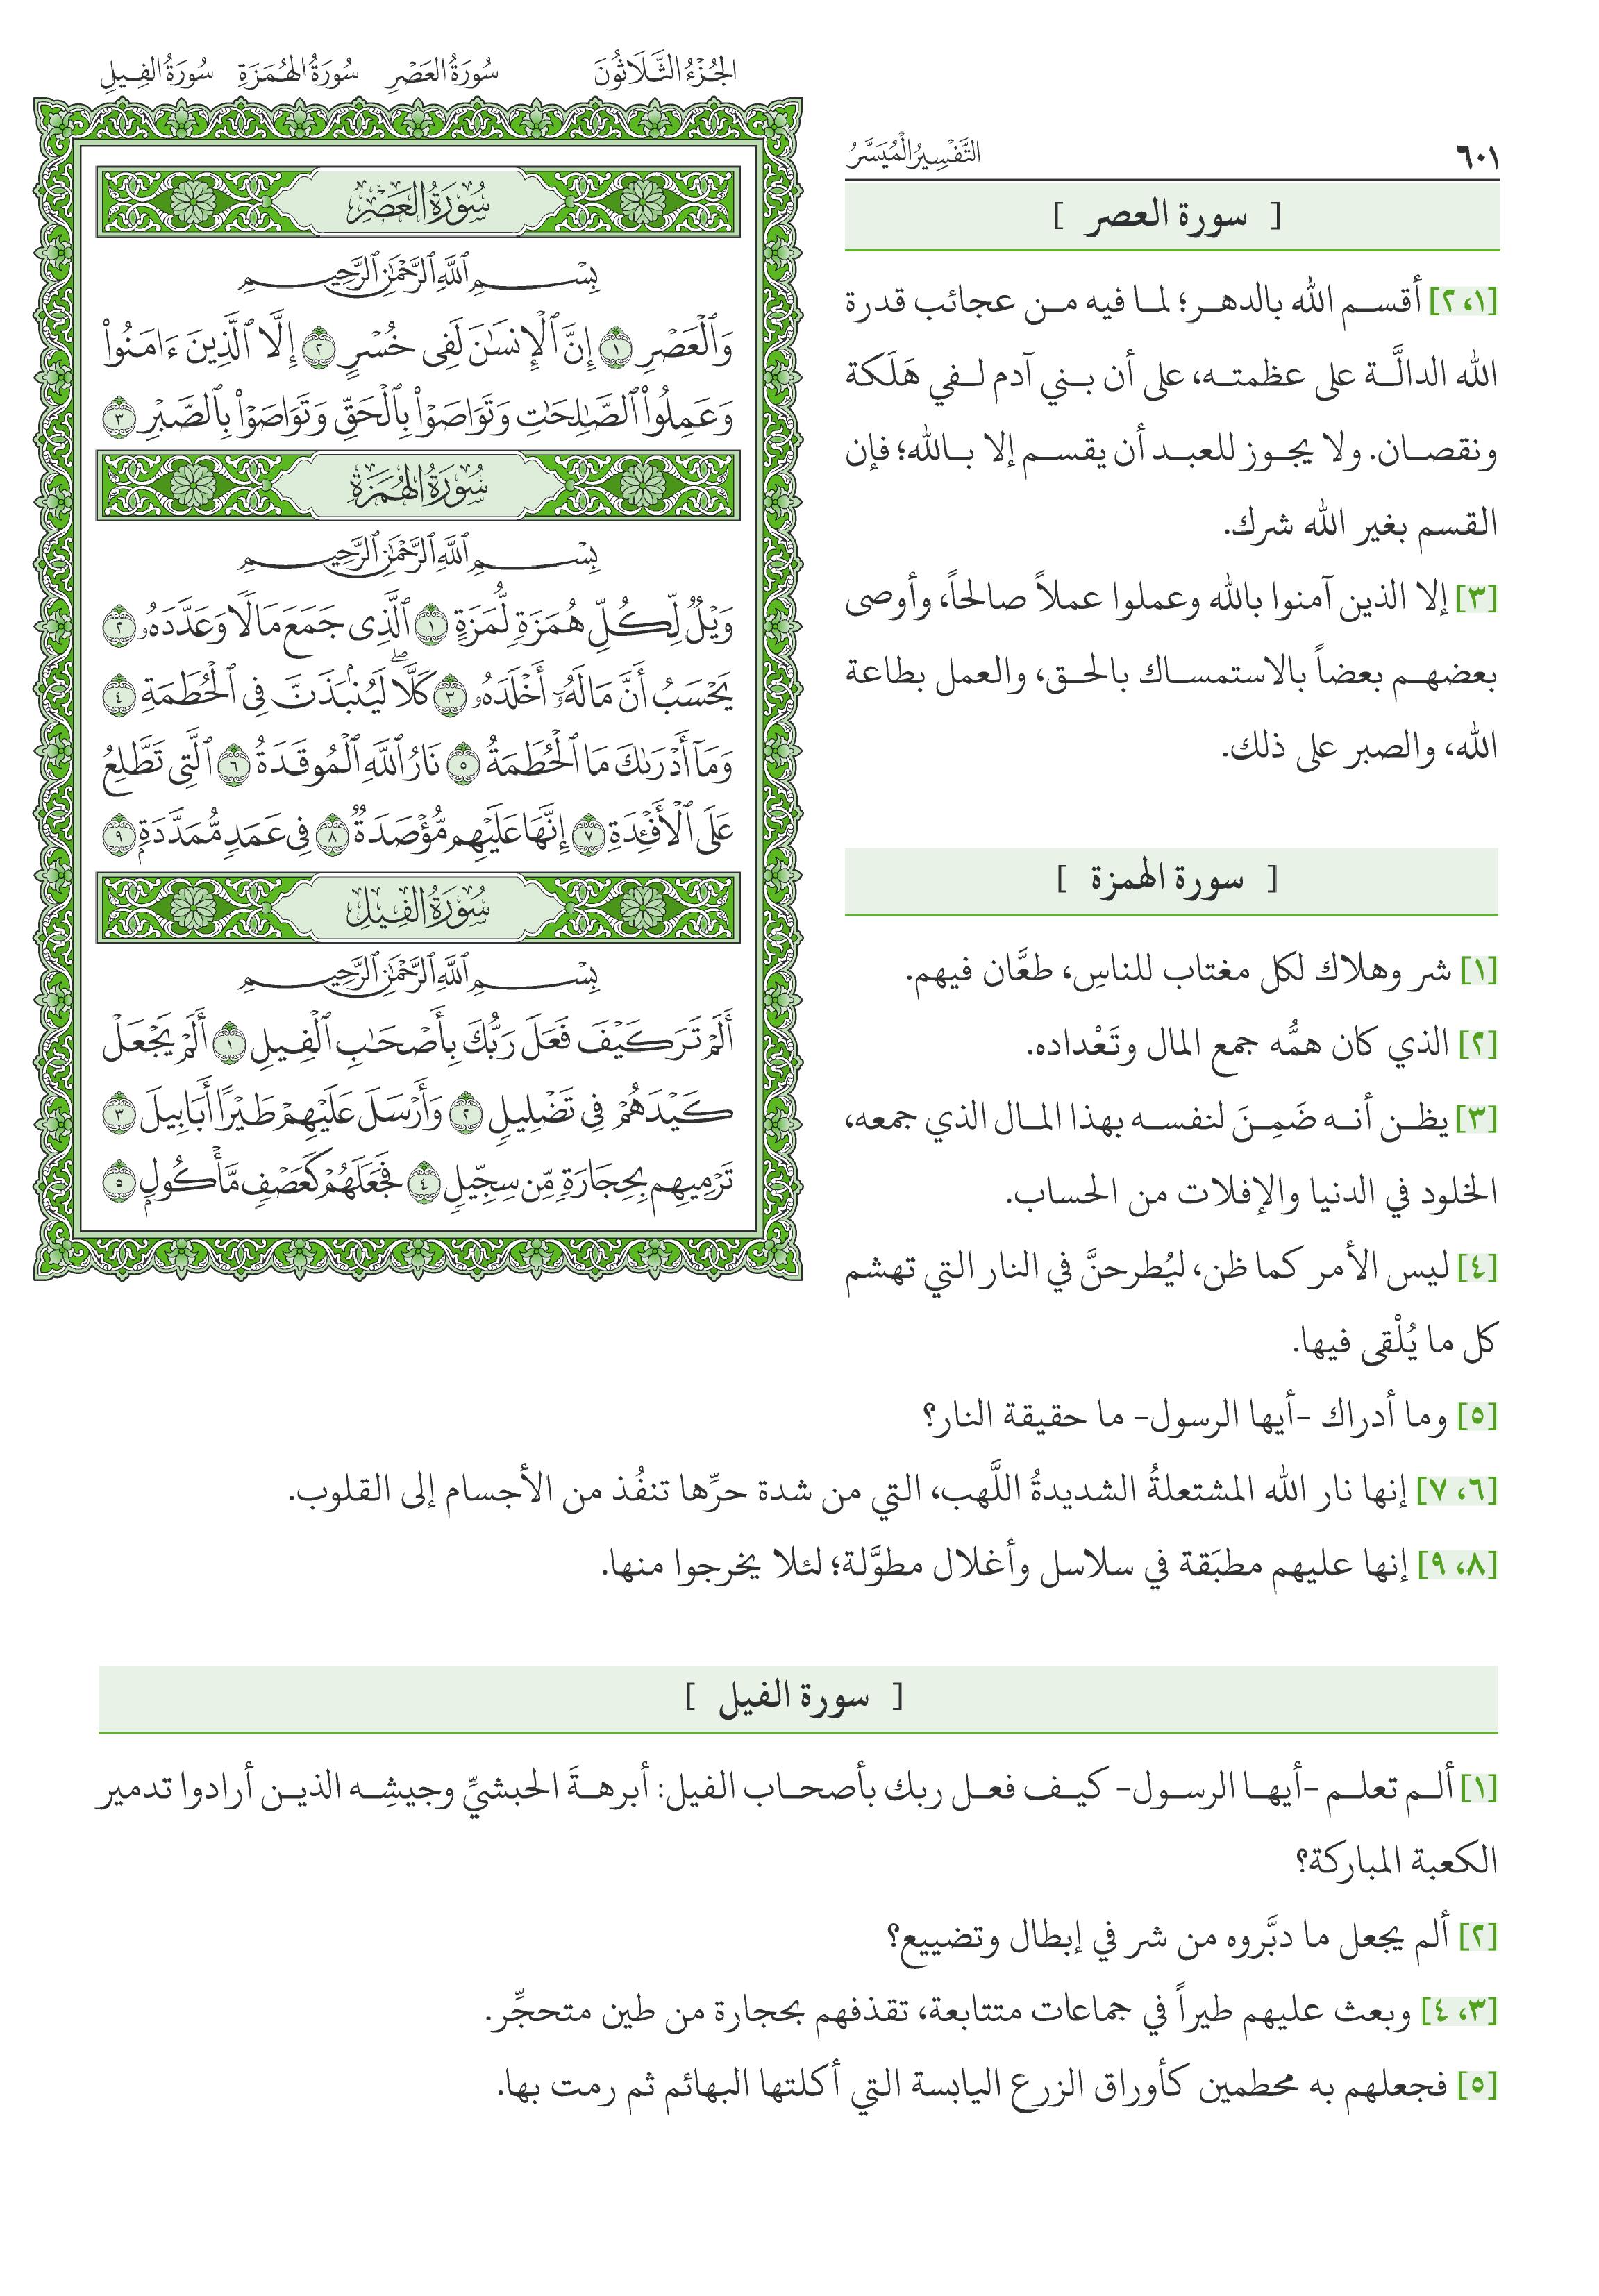 الجُزْءُ الثَّلَاثُونَ سُورَةُ العَصْرِ سُورَةُ الهُمَزَةِ سُورَةُ الفِيلِ
سُورَةُ العَصْرِ
بِسْمِ ٱللَّهِ ٱلرَّحْمَٰنِ ٱلرَّحِيمِ
وَٱلْعَصْرِ ١ إِنَّ ٱلْإِنسَٰنَ لَفِى خُسْرٍ ٢ إِلَّا ٱلَّذِينَ ءَامَنُوا۟
وَعَمِلُوا۟ ٱلصَّٰلِحَٰتِ وَتَوَاصَوْا۟ بِٱلْحَقِّ وَتَوَاصَوْا۟ بِٱلصَّبْرِ ٣
سُورَةُ الهُمَزَةِ
بِسْمِ ٱللَّهِ ٱلرَّحْمَٰنِ ٱلرَّحِيمِ
وَيْلٌ لِّكُلِّ هُمَزَةٍ لُّمَزَةٍ ١ ٱلَّذِى جَمَعَ مَالًا وَعَدَّدَهُۥ ٢
يَحْسَبُ أَنَّ مَالَهُۥٓ أَخْلَدَهُۥ ٣ كَلَّا ۖ لَيُنۢبَذَنَّ فِى ٱلْحُطَمَةِ ٤
وَمَآ أَدْرَىٰكَ مَا ٱلْحُطَمَةُ ٥ نَارُ ٱللَّهِ ٱلْمُوقَدَةُ ٦ ٱلَّتِى تَطَّلِعُ
عَلَى ٱلْأَفْـِٔدَةِ ٧ إِنَّهَا عَلَيْهِم مُّؤْصَدَةٌ ٨ فِى عَمَدٍ مُّمَدَّدَةٍۭ ٩
سُورَةُ الفِيلِ
بِسْمِ ٱللَّهِ ٱلرَّحْمَٰنِ ٱلرَّحِيمِ
أَلَمْ تَرَ كَيْفَ فَعَلَ رَبُّكَ بِأَصْحَٰبِ ٱلْفِيلِ ١ أَلَمْ يَجْعَلْ
كَيْدَهُمْ فِى تَضْلِيلٍ ٢ وَأَرْسَلَ عَلَيْهِمْ طَيْرًا أَبَابِيلَ ٣
تَرْمِيهِم بِحِجَارَةٍ مِّن سِجِّيلٍ ٤ فَجَعَلَهُمْ كَعَصْفٍ مَّأْكُولٍۭ ٥
٦٠١ التَّفْسِيرُ الْمُيَسَّرُ
[ سورة العصر ]
[١، ٢] أقسم الله بالدهر؛ لما فيه من عجائب قدرة
الله الدالَّة على عظمته، على أن بني آدم لفي هَلَكة
ونقصان. ولا يجوز للعبد أن يقسم إلا بالله؛ فإن
القسم بغير الله شرك.
[٣] إلا الذين آمنوا بالله وعملوا عملاً صالحاً، وأوصى
بعضهم بعضاً بالاستمساك بالحق، والعمل بطاعة
الله، والصبر على ذلك.
[ سورة الهمزة ]
[١] شر وهلاك لكل مغتاب للناسِ، طعَّان فيهم.
[٢] الذي كان همُّه جمع المال وتَعْداده.
[٣] يظن أنه ضَمِنَ لنفسه بهذا المال الذي جمعه،
الخلود في الدنيا والإفلات من الحساب.
[٤] ليس الأمر كما ظن، ليُطرحنَّ في النار التي تهشم
كل ما يُلْقى فيها.
[٥] وما أدراك -أيها الرسول- ما حقيقة النار؟
[٦، ٧] إنها نار الله المشتعلةُ الشديدةُ اللَّهب، التي من شدة حرِّها تنفُذ من الأجسام إلى القلوب.
[٨، ٩] إنها عليهم مطبَقة في سلاسل وأغلال مطوَّلة؛ لئلا يخرجوا منها.
[ سورة الفيل ]
[١] ألم تعلم -أيها الرسول- كيف فعل ربك بأصحاب الفيل: أبرهةَ الحبشيِّ وجيشِه الذين أرادوا تدمير
الكعبة المباركة؟
[٢] ألم يجعل ما دبَّروه من شر في إبطال وتضييع؟
[٣، ٤] وبعث عليهم طيراً في جماعات متتابعة، تقذفهم بحجارة من طين متحجِّر.
[٥] فجعلهم به محطمين كأوراق الزرع اليابسة التي أكلتها البهائم ثم رمت بها.